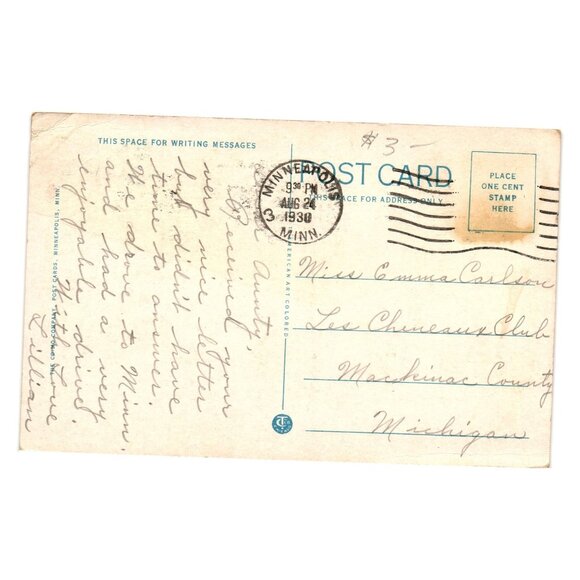 $3-
THIS SPACE FOR WRITING MESSAGES
POST CARD
THIS SPACE FOR ADDRESS ONLY
PLACE
ONE CENT
STAMP
HERE
MINNEAPOLIS
9 30 PM
AUG 24
1930
MINN.
3
Aunty,
Received your
very nice letter
but didn't have
time to answer.
We drove to Minn.
and had a very
enjoyable drive.
With Love
Lillian
Miss Emma Carlson
Les Cheneaux Club
Mackinac County
Michigan
COMPANY, POST CARDS, MINNEAPOLIS, MINN.
AMERICAN ART COLORED